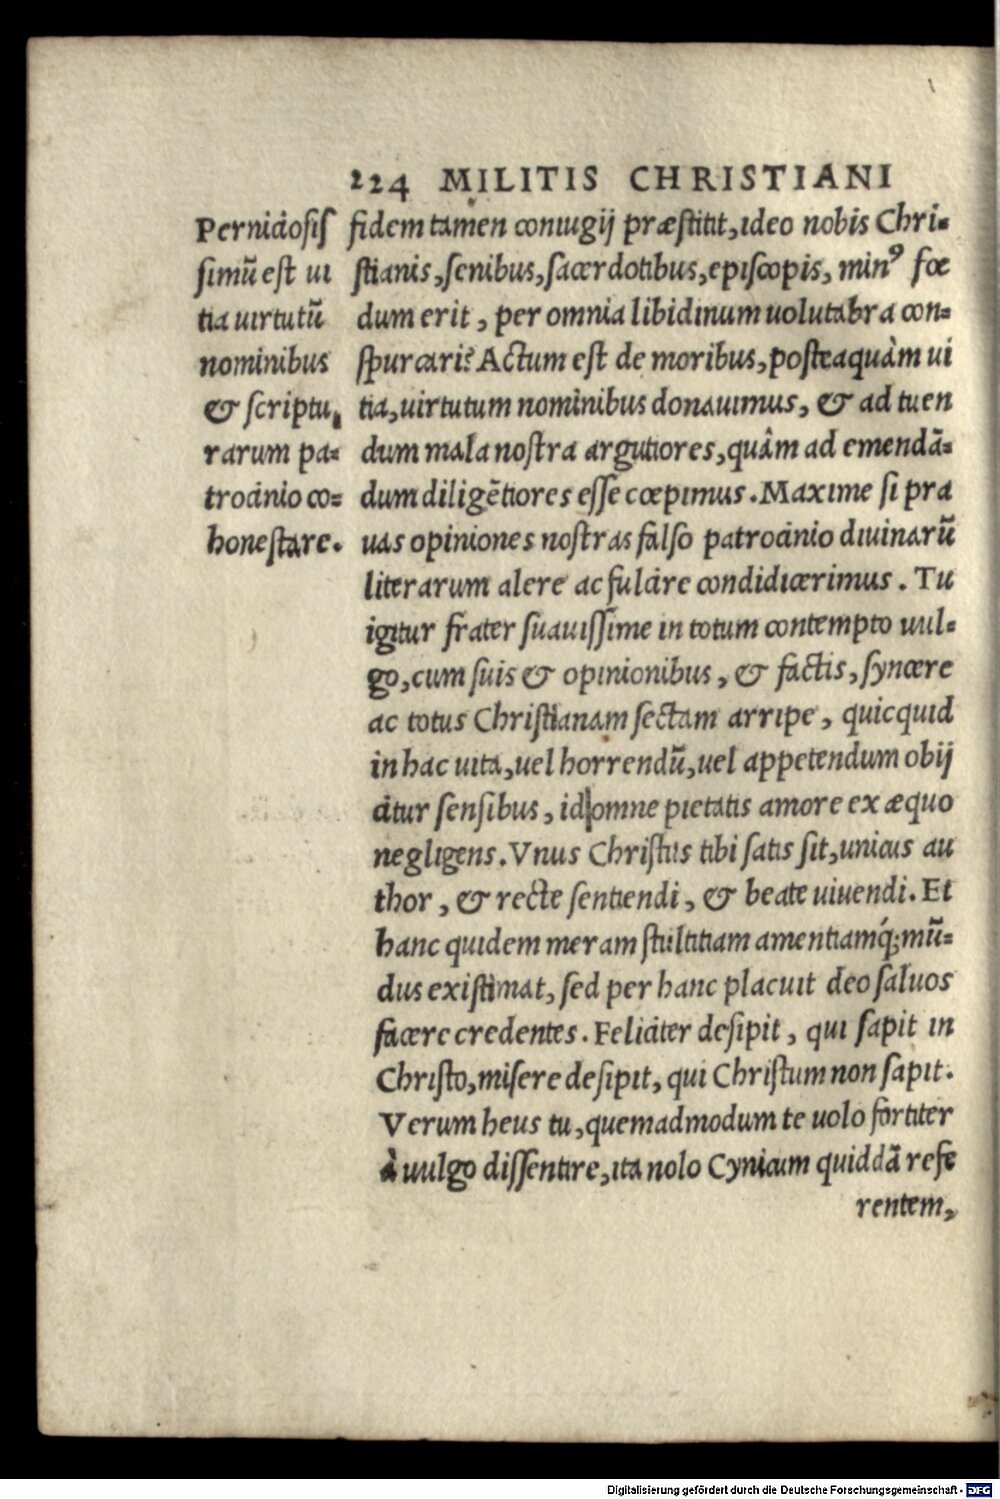 224 MILITIS CHRISTIANI
Perniciosiſ
ſimũ eſt ui
tia uirtutũ
nominibus
& ſcriptu,
rarum pa-
trocinio co-
honeſtare.
fidem tamen coniugij præſtitit, ideo nobis Chri-
ſtianis, ſenibus, ſacerdotibus, epiſcopis, minꝰ fœ
dum erit, per omnia libidinum uolutabra con-
ſpurcari? Actum eſt de moribus, poſteaquàm ui
tia, uirtutum nominibus donauimus, & ad tuen
dum mala noſtra argutiores, quâm ad emendã-
dum diligẽtiores eſſe cœpimus. Maxime ſi pra
uas opiniones noſtras falſo patrocinio diuinarũ
literarum alere ac fulcire condidicerimus. Tu
igitur frater ſuauiſſime in totum contempto uul-
go, cum ſuis & opinionibus, & factis, ſyncere
ac totus Chriſtianam ſectam arripe, quicquid
in hac uita, uel horrendũ, uel appetendum obij
citur ſenſibus, id omne pietatis amore ex æquo
negligens. Vnus Chriſtus tibi ſatis ſit, unicus au
thor, & recte ſentiendi, & beate uiuendi. Et
hanc quidem meram ſtultitiam amentiamq́; mũ-
dus exiſtimat, ſed per hanc placuit deo ſaluos
facere credentes. Feliciter deſipit, qui ſapit in
Chriſto, miſere deſipit, qui Chriſtum non ſapit.
Verum heus tu, quemadmodum te uolo fortiter
à uulgo diſſentire, ita nolo Cynicum quiddã refe
rentem,
Digitalisierung gefördert durch die Deutsche Forschungsgemeinschaft - DFG